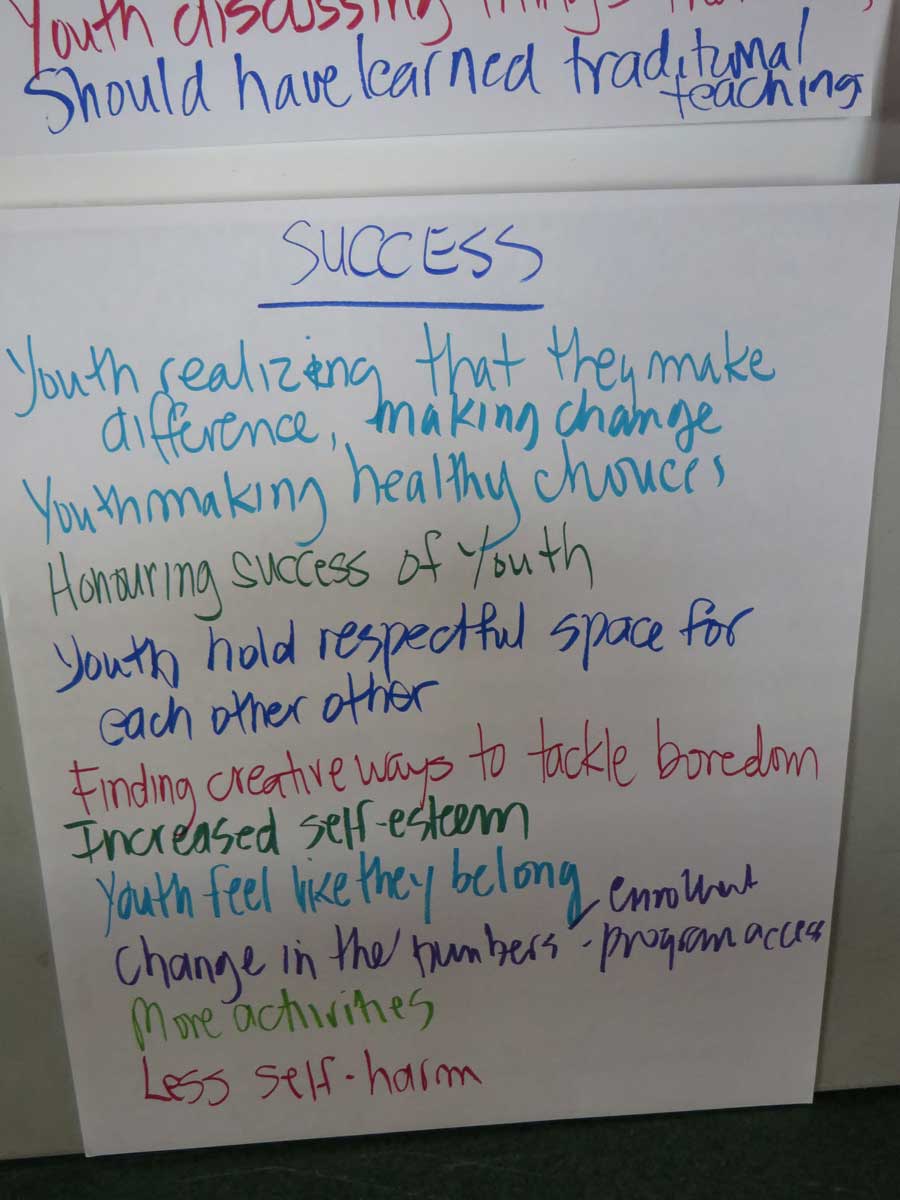 Youth discussing things
Should have learned traditional
teachings
SUCCESS
Youth realizing that they make
difference, making change
Youth making healthy chouces
Honouring success of Youth
Youth hold respectful space for
each other other
Finding creative ways to tackle boredom
Increased self-esteem
Youth feel like they belong
enrollment
Change in the numbers - program access
More activities
Less self-harm